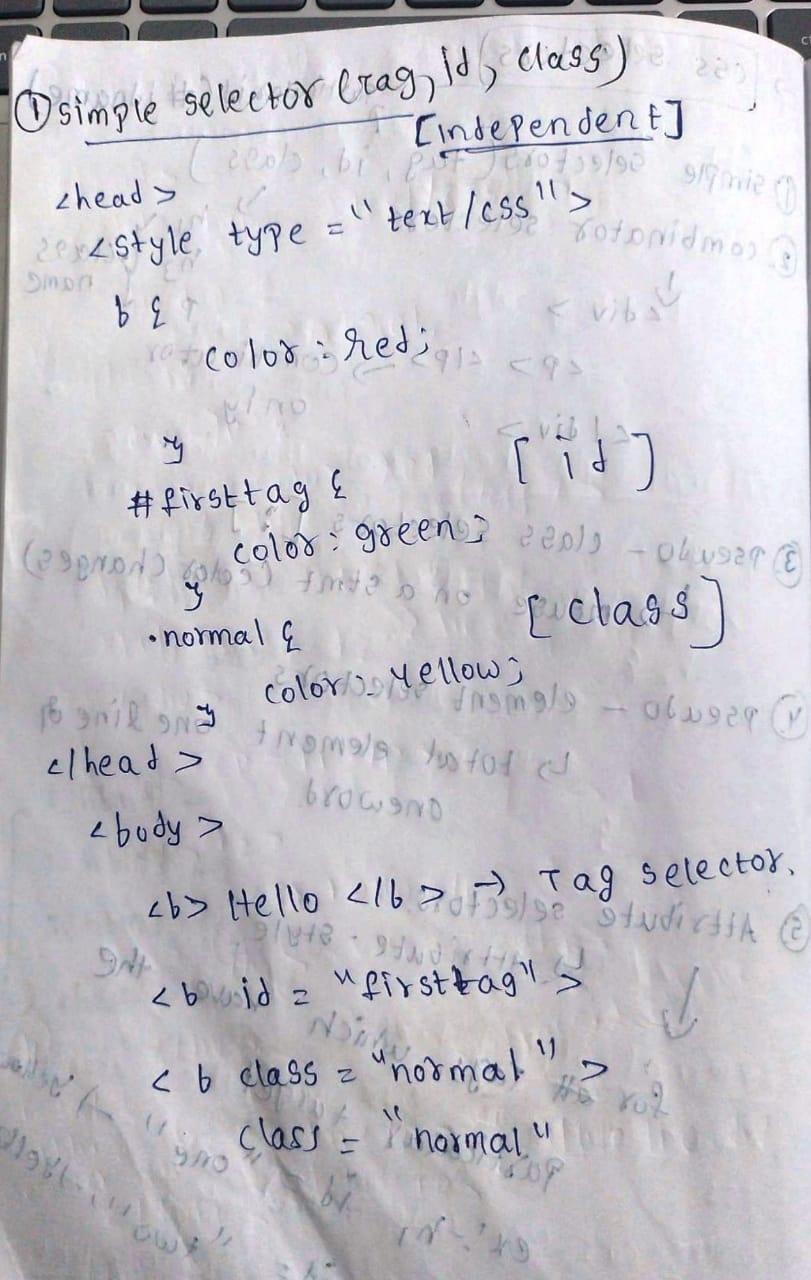 ① simple selector (tag, id, class)
[independent]
<head>
<style type = "text/css">
b {
color : red;
}
#firsttag { [id]
color : green;
}
.normal { [class]
color : yellow;
}
</head>
<body>
<b> Hello </b> → Tag selector.
<b id = "firsttag">
<b class = "normal">
class = "normal"